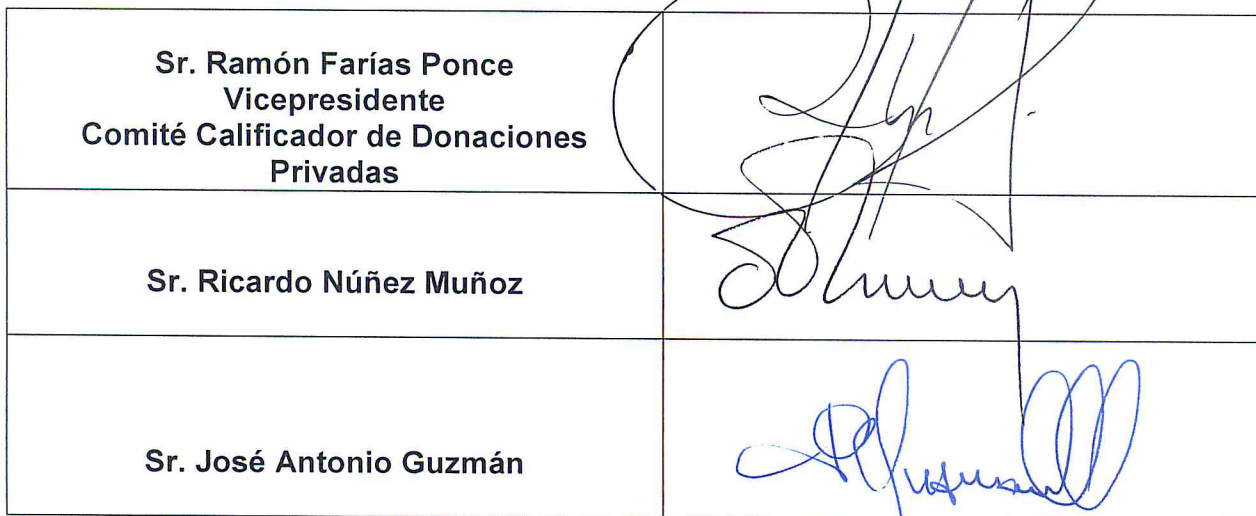 Sr. Ramón Farías Ponce
Vicepresidente
Comité Calificador de Donaciones
Privadas
Sr. Ricardo Núñez Muñoz
Sr. José Antonio Guzmán